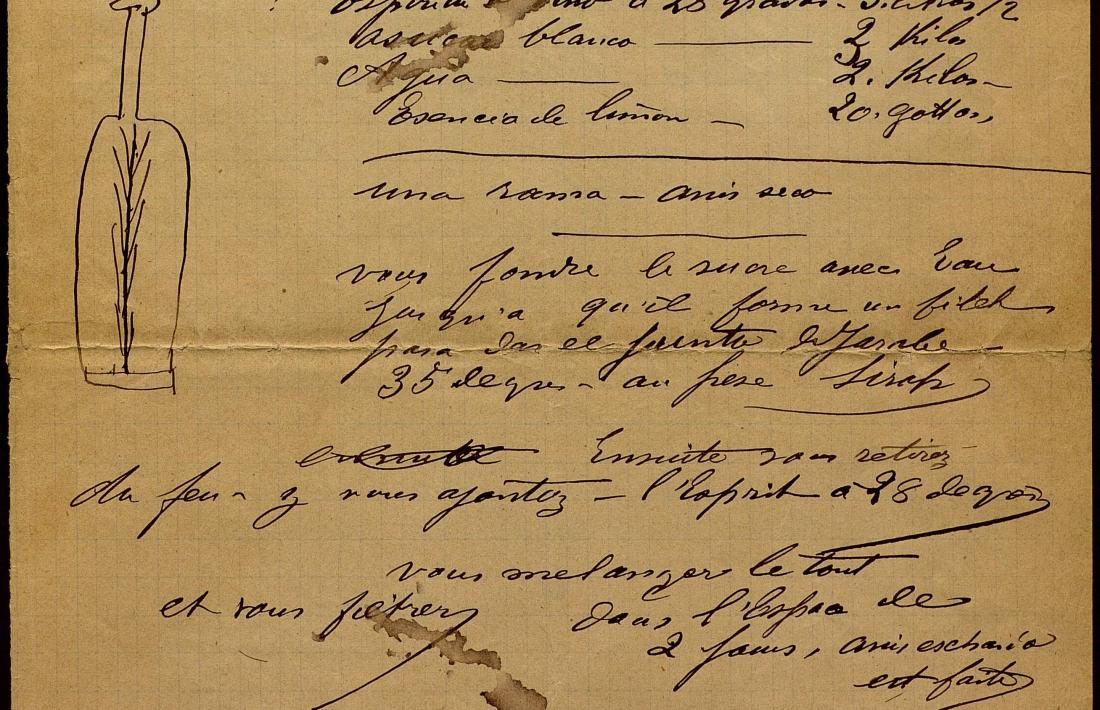 a 28 grados - 3. litros 1/2
asucar blanco — 2 Kilos
Agua — 2. Kilos -
Esencia de limon — 20. gottas,
una rama - anis seco
vous fondre le sucre avec Eau
Jusqu'a qu'il forme un filet
para dar el puntto de Jarabe -
35 degres - au pese Sirop
Ensuite vous retirez
du feu - y vous ajoutez - l'Esprit a 28 degrés
vous melanger le tout
et vous filtrer dans l'Espac de
2 Jours, anis escharéo
est faite